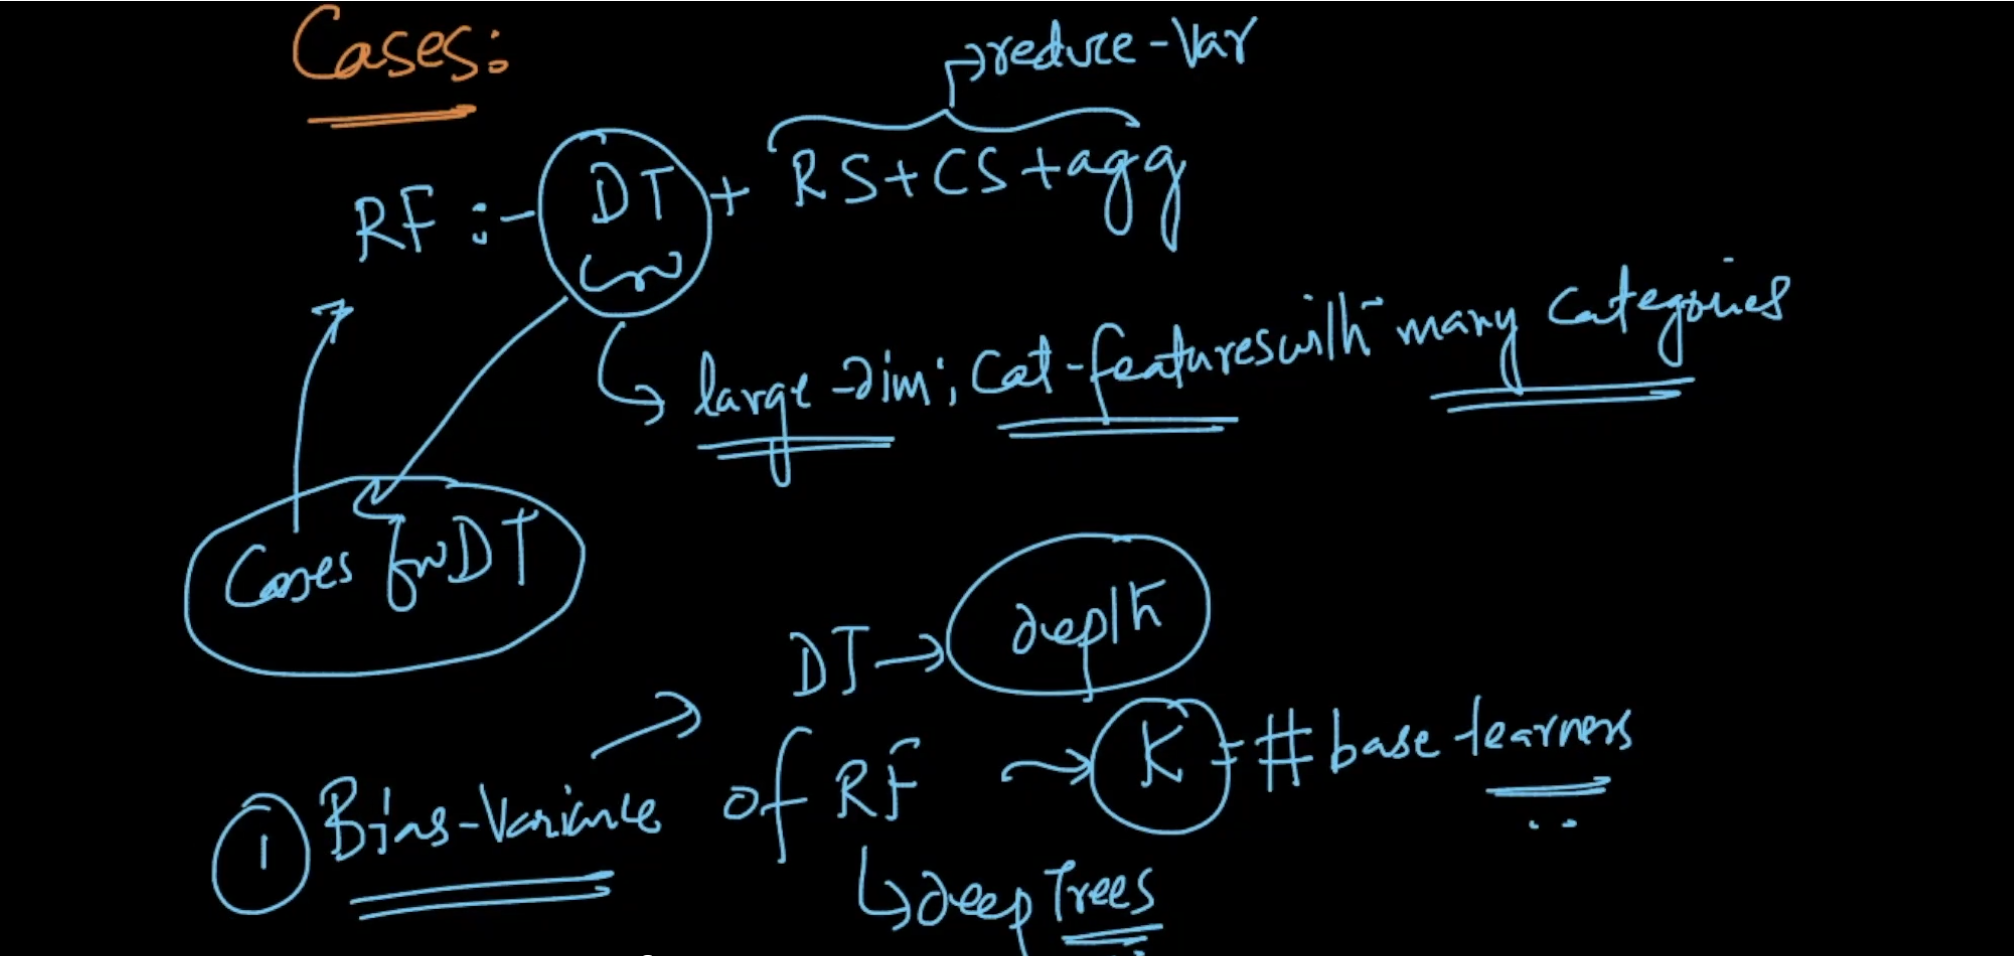 Cases:
reduce-Var
RF :- DT + RS+CS+agg
large-dim; Cat-features with many categories
Cases for DT
DT → depth
① Bias-Variance of RF → K = # base-learners
↳ deep Trees